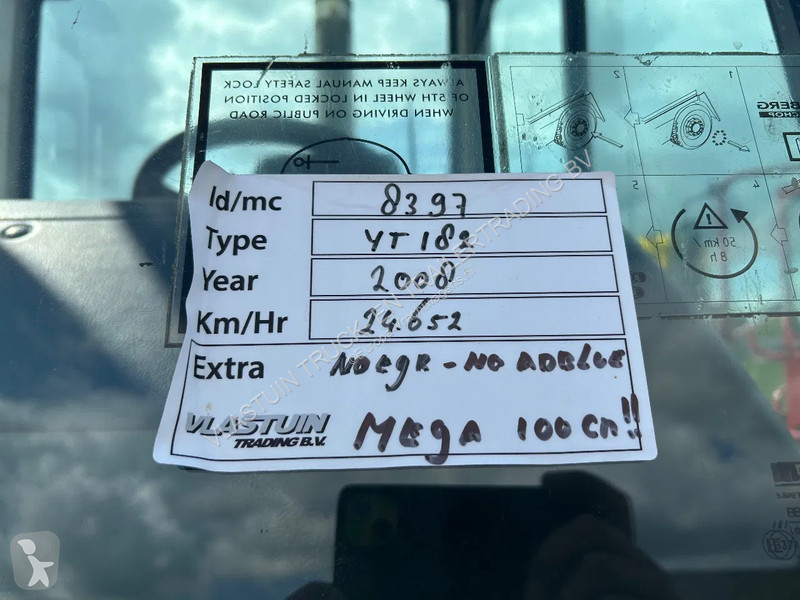 ALWAYS KEEP MANUAL SAFETY LOCK
OF 5TH WHEEL IN LOCKED POSITION
WHEN DRIVING ON PUBLIC ROAD
2
1
BERG
5
4
50 km/
8 h
Id/mc 8397
Type YT 182
Year 2008
Km/Hr 24.652
Extra NO EGR - NO ADBLUE
VLASTUIN
TRADING B.V.
MEGA 100 cm!!
VLASTUIN TRUCK EN TRAILERTRADING BV